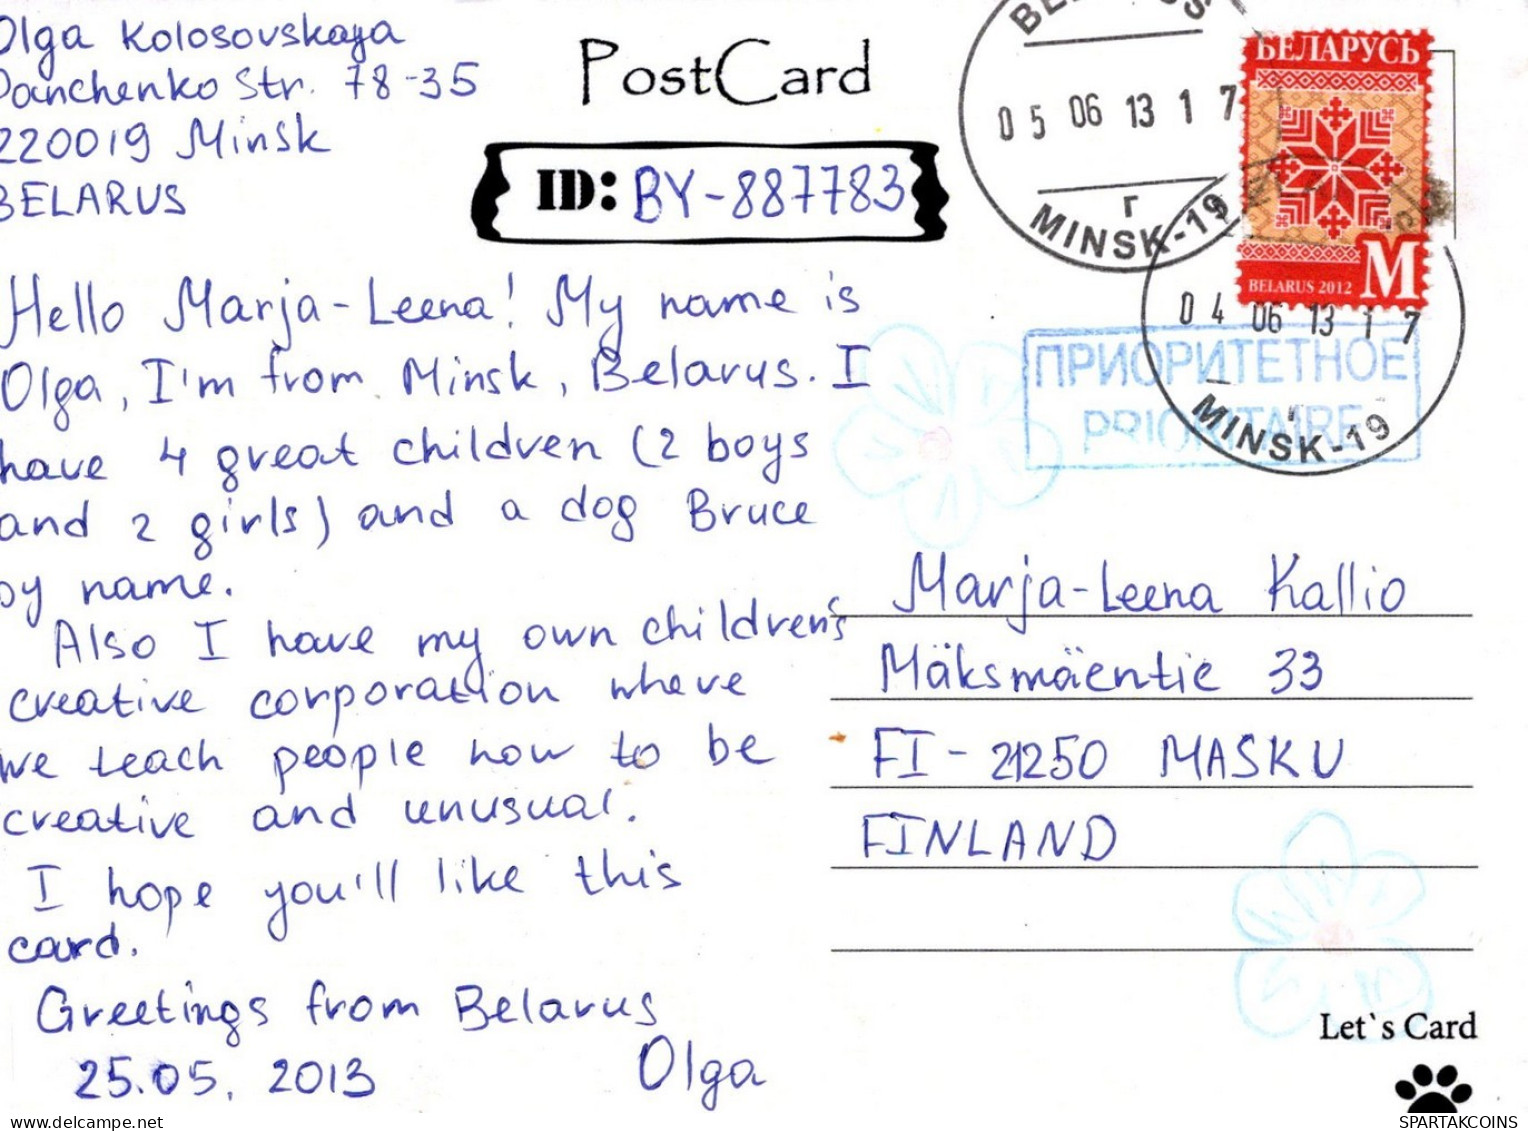 Olga Kolosovskaya
Panchenko Str. 78-35
220019 Minsk
BELARUS
PostCard
ID: BY-887783
BELARUS
05 06 13 17
г
MINSK-19
БЕЛАРУСЬ
M
BELARUS 2012
04 06 13 17
MINSK-19
ПРИОРИТЕТНОЕ
PRIORITAIRE
Hello Marja-Leena! My name is
Olga, I'm from Minsk, Belarus. I
have 4 great children (2 boys
and 2 girls) and a dog Bruce
by name.
Also I have my own children's
creative corporation where
we teach people how to be
creative and unusual.
I hope you'll like this
card.
Greetings from Belarus
25.05.2013 Olga
Marja-Leena Kallio
Mäksmäentie 33
FI-21250 MASKU
FINLAND
Let`s Card
delcampe.net
SPARTAKCOINS